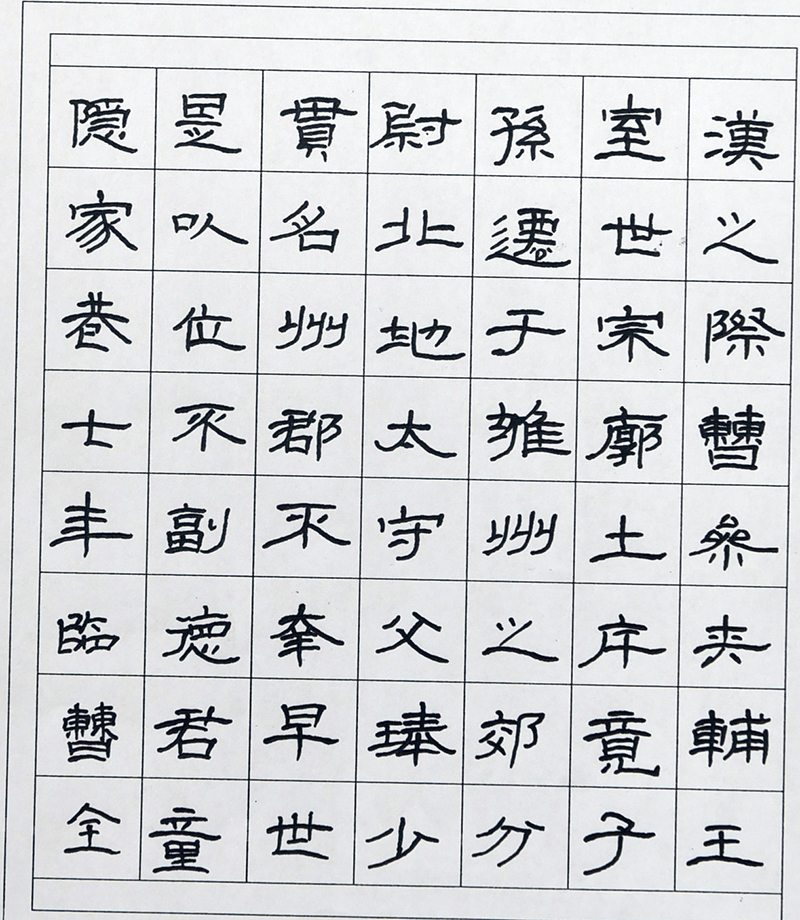 漢之際曹參夾輔王
室世宗廓土序竟子
孫遷于雍州之郊分
尉北地太守父琫少
貫名州郡不幸早世
是以位不副德君童
隱家巷士年臨曹全